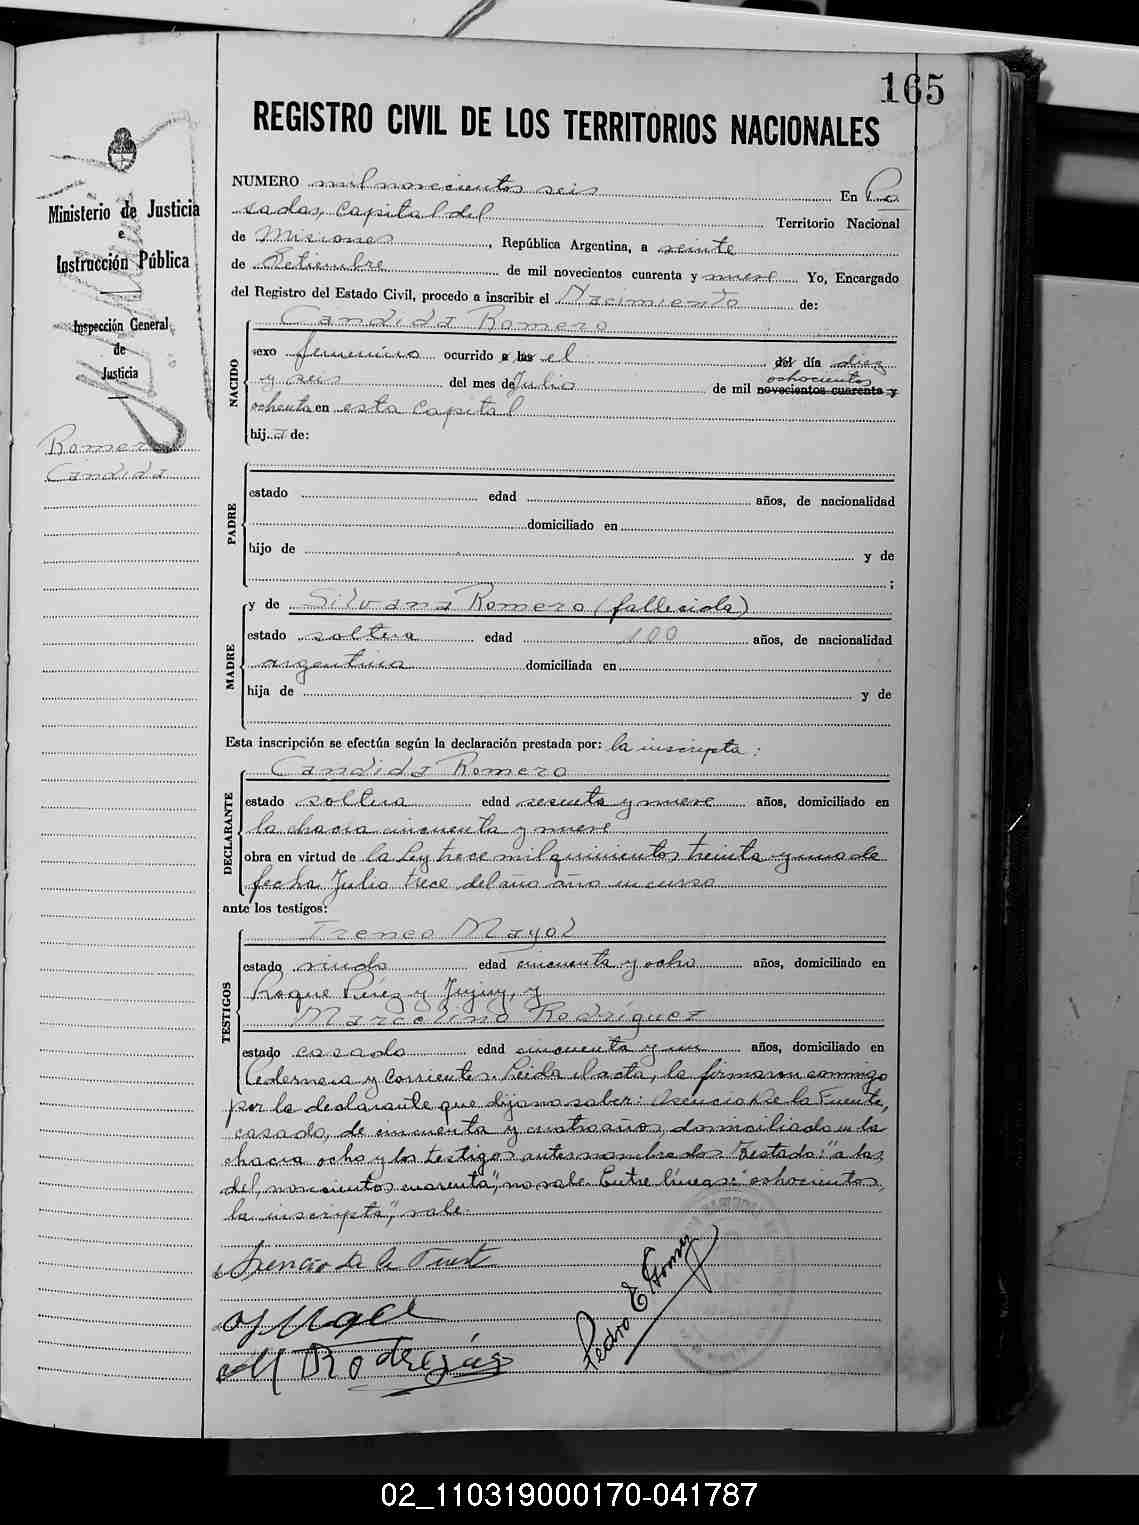 165
REGISTRO CIVIL DE LOS TERRITORIOS NACIONALES
Ministerio de Justicia
e
Instrucción Pública
Inspección General
de
Justicia
Romero
Candida
NUMERO mil novecientos seis En Po
sadas, capital del Territorio Nacional
de Misiones, República Argentina, a veinte
de Setiembre de mil novecientos cuarenta y nueve Yo, Encargado
del Registro del Estado Civil, procedo a inscribir el Nacimiento de:
NACIDO
Candida Romero
sexo femenino ocurrido a las el del día diez
y seis del mes de Julio de mil novecientos cuarenta y
ochocientos
ochenta en esta capital
hij a de:
PADRE
estado edad años, de nacionalidad
domiciliado en
hijo de y de
;
MADRE
y de Silvana Romero (fallecida)
estado soltera edad 100 años, de nacionalidad
argentina domiciliada en
hija de y de
Esta inscripción se efectúa según la declaración prestada por: la inscripta:
DECLARANTE
Candida Romero
estado soltera edad sesenta y nueve años, domiciliado en
la chacra cincuenta y nueve
obra en virtud de la Ley trece mil quinientos treinta y uno de
fecha Julio trece del año año en curso
ante los testigos:
TESTIGOS
Ireneo Mayol
estado viudo edad cincuenta y ocho años, domiciliado en
Roque Pérez y Jujuy, y
Marcelino Rodríguez
estado casado edad cincuenta y un años, domiciliado en
Cedernera y Corrientes. Leida el acta, la firmaron conmigo
por la declarante que dijo no saber: Asencio de la Fuente,
casado, de cincuenta y cuatro años, domiciliado en la
chacra ocho y los testigos antes nombrados. Testado: "a las
del, novecientos cuarenta", no vale. Entre líneas: "ochocientos,
la inscripta", vale.
Asencio de la Fuente
M Rodríguez
Pedro E Gomez
02_110319000170-041787